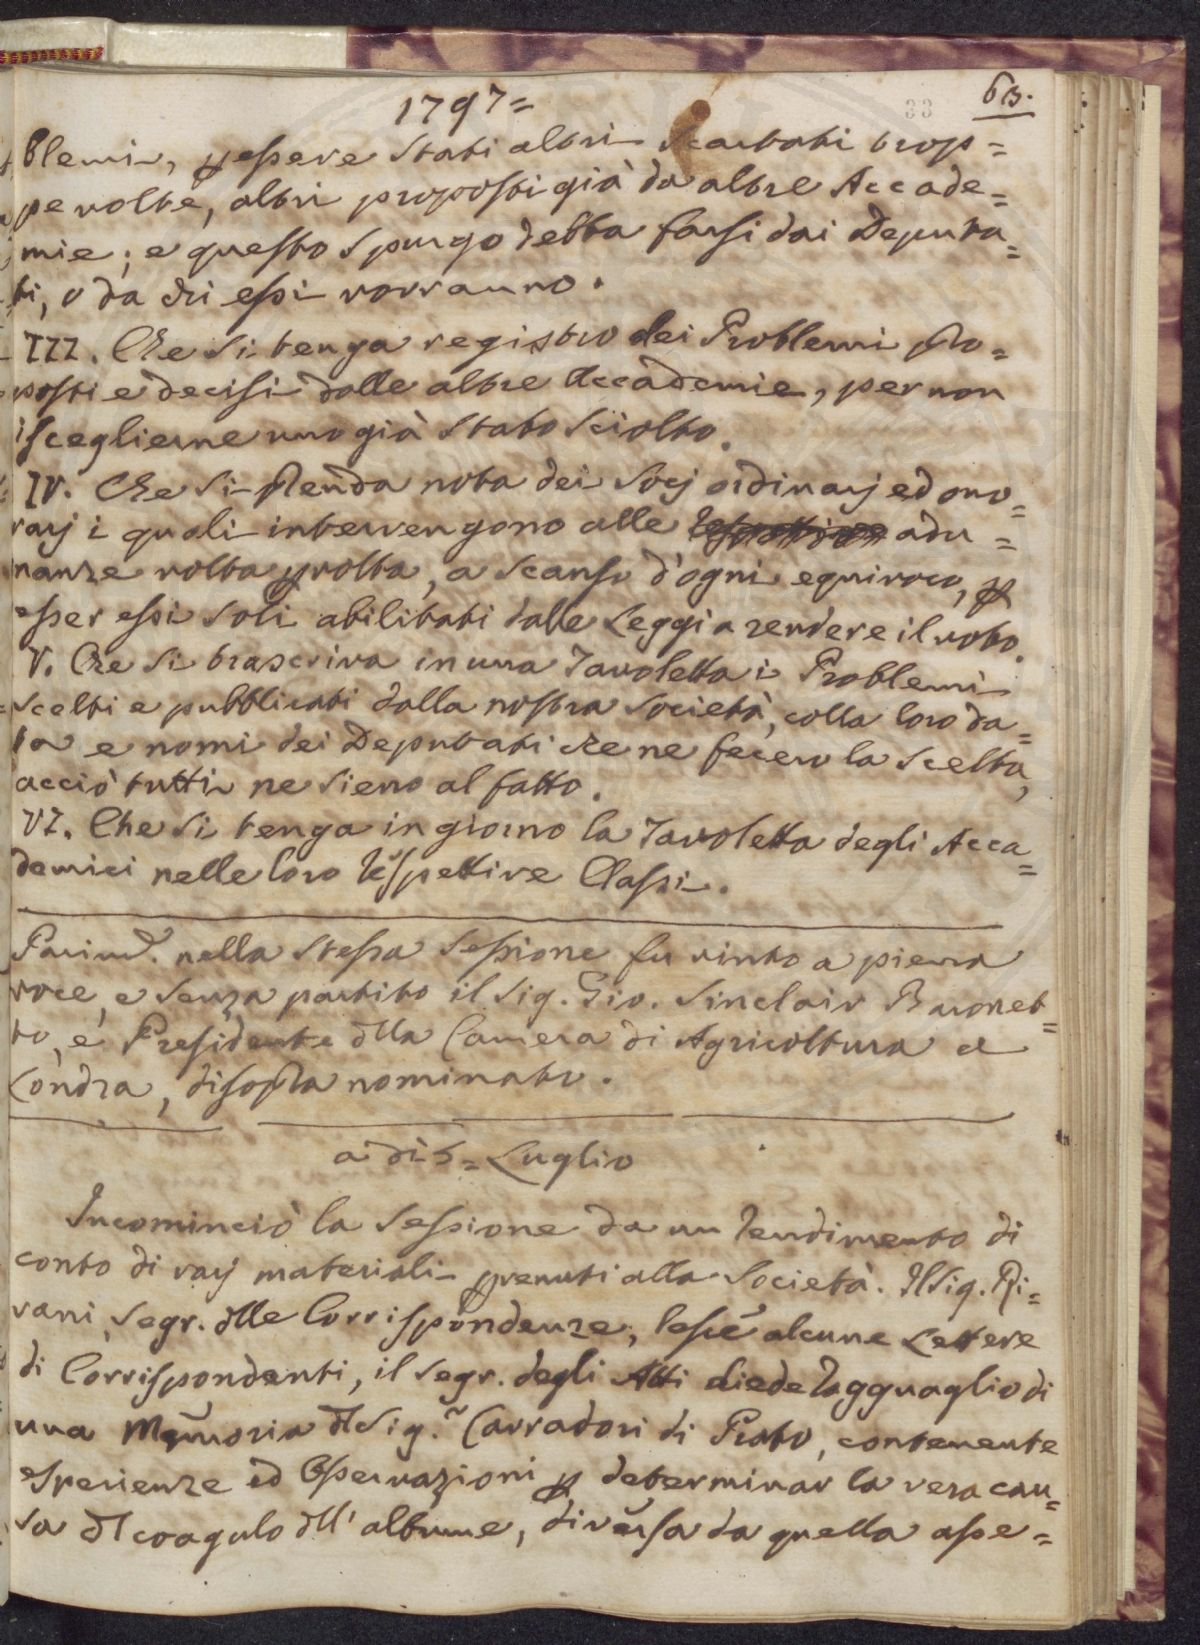 1797=
33 63.
blemi, p essere stati altri scartati trop=
pe volte, altri proposti già da altre Accade=
mie; e questo spurgo debba farsi dai Deputa=
ti, o da chi essi vorranno.
III. Che si tenga registro dei Problemi pro=
posti e decisi dalle altre Accademie, per non
isceglierne uno già stato sciolto.
IV. Che si prenda nota dei Socj ordinarj ed ono=
rarj i quali intervengono alle adu=
nanze volta p volta, a scanso d'ogni equivoco, p
esser essi soli abilitati dalle Leggi a rendere il voto.
V. Che si trascriva in una Tavoletta i Problemi
scelti e pubblicati dalla nostra Società, colla loro da=
ta e nomi dei Deputati che ne fecero la scelta,
acciò tutti ne sieno al fatto.
VI. Che si tenga in giorno la Tavoletta degli Acca=
demici nelle loro respettive Classi.
Parimt. nella stessa Sessione fu vinto a piena
voce, e senza partito il Sig. Gio. Sinclair Baronet=
to, e Presidente dlla Camera di Agricoltura a
Londra, disopra nominato.
a dì 5= Luglio
Incominciò la Sessione da un rendimento di
conto di varj materiali prenuti alla Società. Il Sig. Ri=
vani, Segr. dlle Corrispondenze, lesse alcune Lettere
di Corrispondenti, il Segr. degli Atti diede ragguaglio di
una Memoria dl Sig.r Carradori di Prato, contenente
esperienze ed Osservazioni p determinar la vera cau=
sa dl coagulo dll' albume, diversa da quella asse=